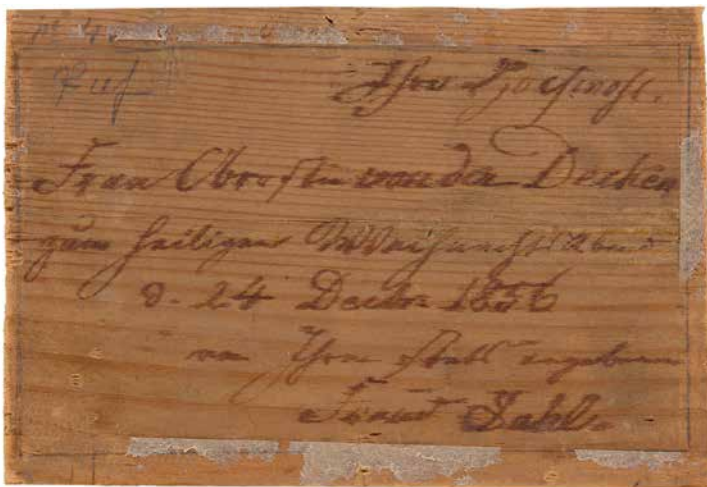 Ihro Hochwohl.
Frau Obrostin von der Decken
zum heiligen Weihnachts Abend
d. 24 Decbr 1856
von Ihrem stets ergebenen
Dahl.